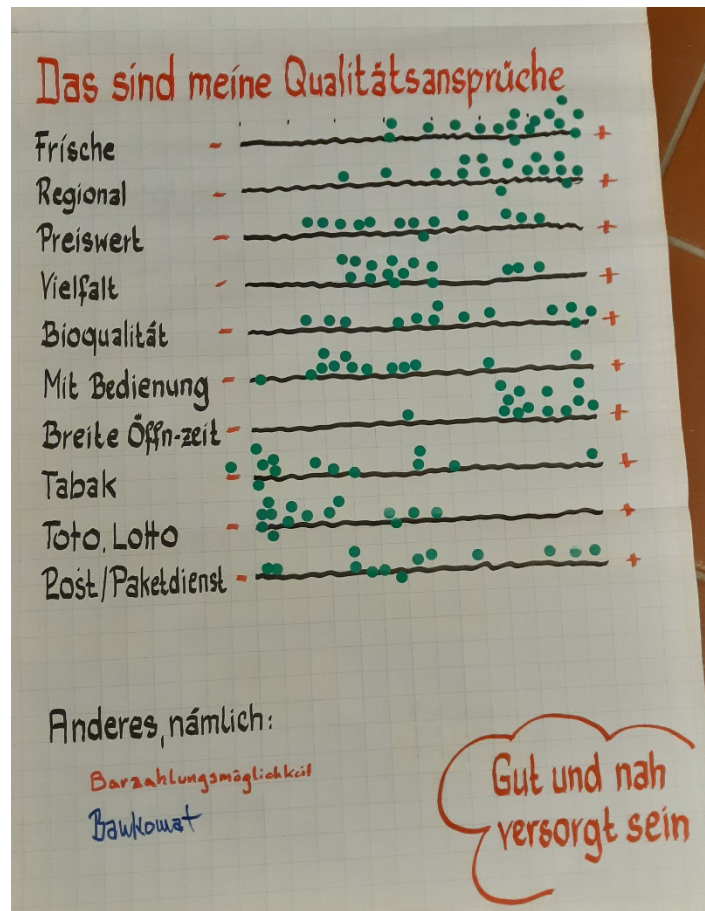 Das sind meine Qualitätsansprüche
Frische - +
Regional - +
Preiswert - +
Vielfalt - +
Bioqualität - +
Mit Bedienung - +
Breite Öffn-zeit - +
Tabak - +
Toto, Lotto - +
Post/Paketdienst - +
Anderes, nämlich:
Barzahlungsmöglichkeit
Bankomat
Gut und nah
versorgt sein